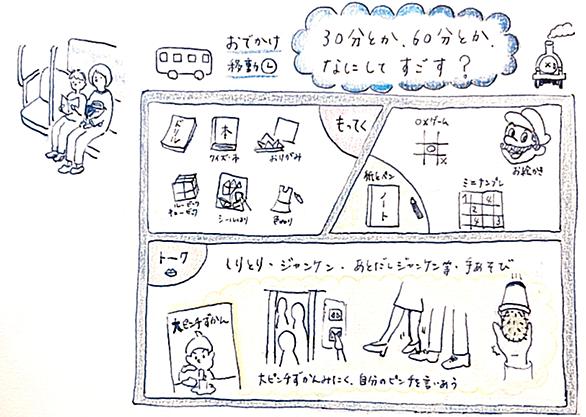 おでかけ
移動
30分とか、60分とか、
なにして すごす？
もってく
ドリル
本
クイズ・本
おりがみ
ルービック
キューブ
シールはり
色ぬり
紙とペン
ノート
○×ゲーム
×
お絵かき
ミニナンプレ
1
2
4
3
4
トーク
しりとり・ジャンケン・あとだしジャンケン等・手あそび
大ピンチずかん
大ピンチずかんみたく、自分のピンチを言いあう